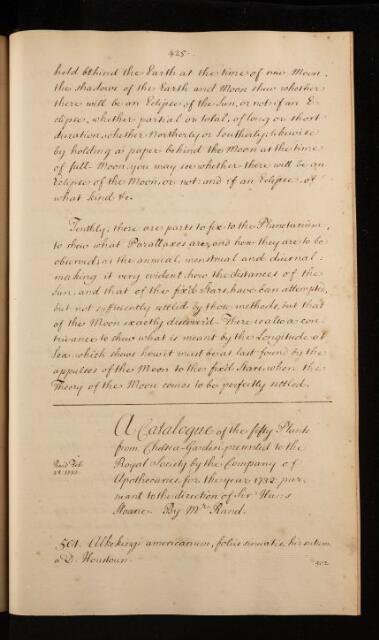 425.
held behind the Earth at the time of new Moon,
the shadows of the Earth and Moon shew whether
there will be an Eclipse of the Sun, or not: if an E-
clipse, whether partial or total, of long or short
duration, whether Northerly or Southerly; likewise
by holding a paper behind the Moon at the time
of full-Moon you may see whether there will be an
Eclipse of the Moon, or not: and if an Eclipse, of
what kind &c.
Tenthly; there are parts to fix to the Planetarium,
to shew what Parallaxes are, and how they are to be
observed; as the annual, menstrual and diurnal:
making it very evident how the distances of the
Sun, and that of the fix'd Stars, have been attempted,
but not sufficiently settled by those methods, but that
of the Moon exactly discover'd. There is also a con-
trivance to shew what is meant by the Longitude at
Sea, which shows how it must be at last found by the
appulses of the Moon to the fix'd Stars, when the
Theory of the Moon comes to be perfectly settled.
A Catalogue of the fifty Plants
from Chelsea-Garden, presented to the
Royal Society by the Company of
Apothecaries, for the year 1732, pur-
suant to the direction of Sir Hans
Sloane. By Mr. Rand.
Read Feb.
501. Alkekengi americanum, foliis sinuatis, his
a D. Houstoun.
502